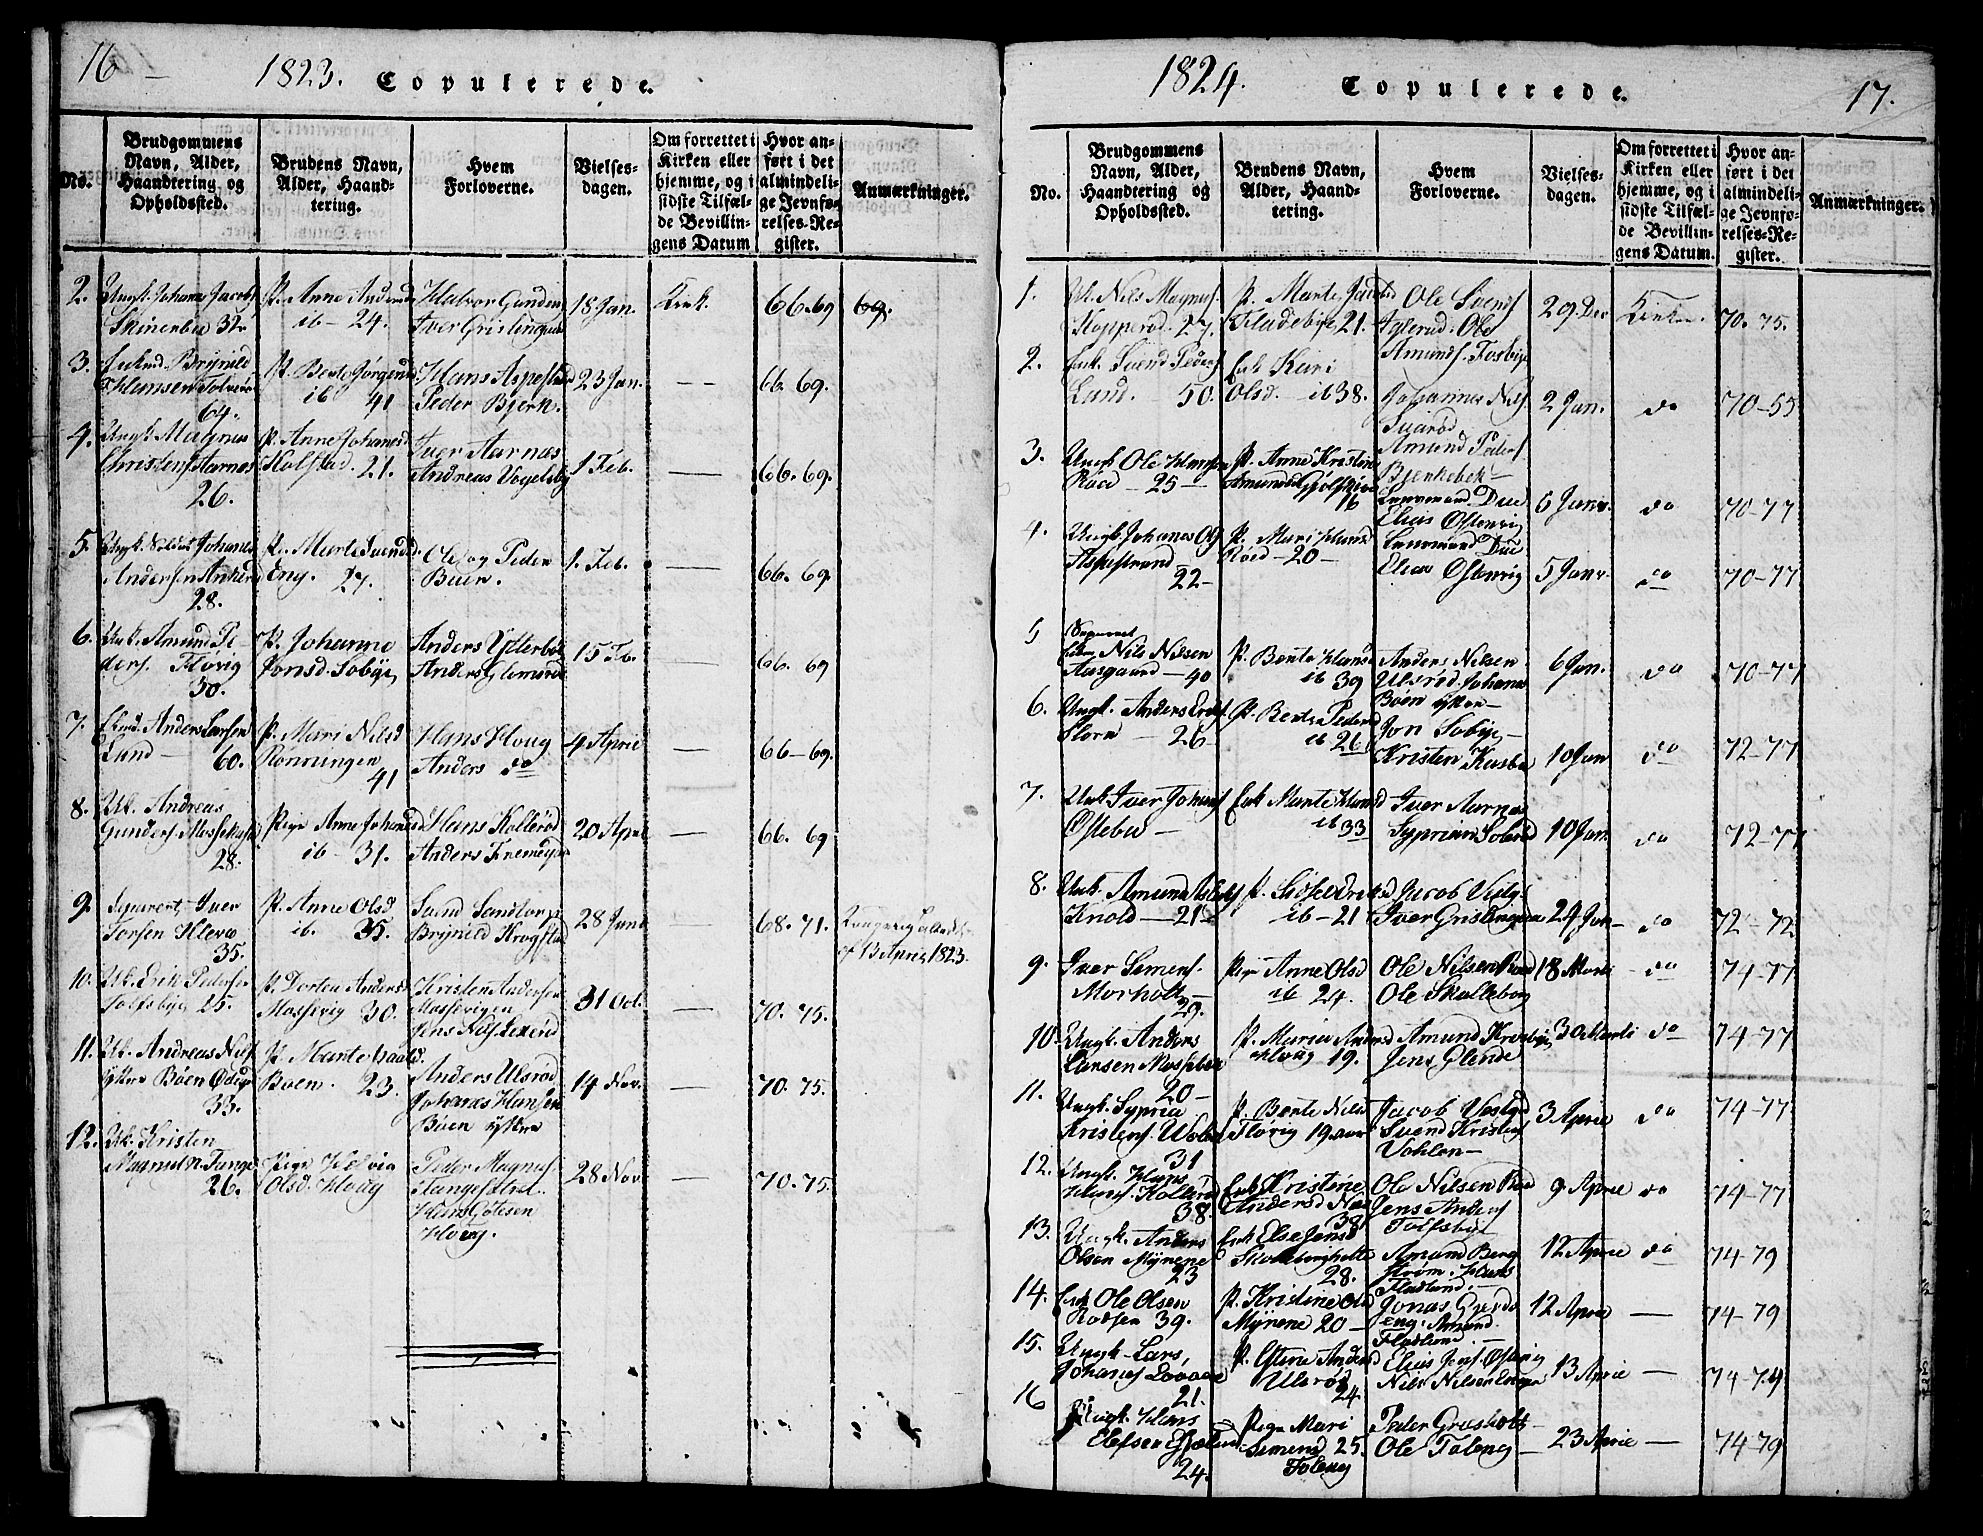 16
1823. Copulerede.
No.
Brudgommens
Navn, Alder,
Haandtering og
Opholdssted.
Brudens Navn,
Alder, Haand-
tering.
Hvem
Forloverne.
Vielses-
dagen.
Om forrettet i
Kirken eller
hjemme, og i
sidste Tilfæl-
de Bevillin-
gens Datum
Hvor an-
ført i det
almindeli-
ge Jevnfø-
relses-Re-
gister.
Anmærkninger.
2.
Ungk. Johans Jacobs
32
P. Anne Anders
ib - 24.
Halvor Gunders
Iver
18 Jan.
Kirk.
66.69
69.
3.
Brynild
Hansen
64.
P. Berte Jørgens
ib 41
Hans Aspestrand
Peder Bjerk.
23 Jan.
66. 69.
4.
Ungk. Magnus
Christens Aarnæs
26.
P. Anne Johansd
Kolstad. 21.
Iver Aarnæs
Andreas Vogelsby
1 Feb.
66. 69.
5.
Ungk. Soldat Johanes
Andersen
28.
P. Marte Svends.
Eng. 27.
Ole og Peder
Buer.
1. Feb.
66. 69.
6.
Amund Pe-
ders. Flørig
30.
P. Johanne
Jonsd. Sobye
Anders Ytterbøe
Anders Glemsrød
15 Feb.
66. 69
7.
Anders Larsen
Lund - 60.
P. Mari Nilsd
Ronningen
41
Hans Houg
Anders do
4 April
66-69.
8.
Uk. Andreas
Gunders Mossekasa
28.
Pige Anne Johansd
ib - 31.
Hans Kollerød
Anders
20 April
66. 69
9.
Iver
Torsen Kleve
35.
P. Anne Olsd
ib. 35.
Svend Sandtorp
Brynild Krogstad
28 Juni
68. 71.
af 13 April 1823.
10.
Uk. Erik Pedersen
Tolfsbye 25.
P. Dortea Andersd
Mossevig 30.
Kristen Andersen
Mossevigen
Jens Nils.
31 Oct.
70. 75.
11.
Uk. Andreas Nils.
ytter Bøen
33.
P. Marte
Boen. 23.
Anders Ulsrød
Johanes Hansen
Bøen ytter
14 Nov.
70. 75.
12.
Uk. Kristen
Magnus.
26.
Pige Helvia
Olsd. Houg
Peder Magnus.
Hans
Houg.
28 Nov.
70. 75.
1824. Copulerede.
17.
No.
Brudgommens
Navn, Alder,
Haandtering og
Opholdssted.
Brudens Navn,
Alder, Haand-
tering.
Hvem
Forloverne.
Vielses-
dagen.
Om forrettet i
Kirken eller
hjemme, og i
sidste Tilfæl-
de Bevillin-
gens Datum.
Hvor an-
ført i det
almindeli-
ge Jevnfø-
relses-Re-
gister.
Anmærkninger.
1.
Uk. Nils Magnus.
Kopperød. 27.
P. Marte Jacobsd
Fladebye 21.
Ole Svends
Iglerød. Ole
Amunds. Fosbye
29. Dec
Kirken.
70. 75.
2.
Enk. Svend Peders
Lund. 50.
Enk Kari
Olsd. ib 38.
Johannes Nils
Svarød
2 Jan.
do
70-55
3.
Ungk Ole Hansen
Roed - 25 -
P. Anne Kristine
Amundsd
16
Amund Peders
Bjerkebek -
Lensmand Due
Elias Østenrig
6 Janr.
do
70-77
4.
Ungk Johanes Ols
Aspestrand
22 -
P. Mari Hansd
Röed - 20 -
Lensmand Due
Elias Østenrig
5 Janr.
do
70-77
5
Separeret
Nils Nilsen
Aasgaard - 40
P. Bente Hansd
ib 39
Anders Nilsen
Ulsrød. Johans
Bøen ytter -
6 Jan.
do
70-77
6.
Ungk. Anders
26
P. Berte Pedersd
ib 26
Jon Sobye -
Kristen
10 Jan
do
72-77
7.
Ungk Iver Johans
Østebø -
Enk Marte Hansd
ib 33
Iver Aarnæs
Syprian
10 Jan.
do
72-77
8.
Ungk. Amund
Knold - 21
P.
ib - 21
Jacob
Iver
24 Jan
do
72-72
9.
Iver Simens.
Morholt -
29.
Pige Anne Olsd
ib 24.
Ole Nilsen Roed
Ole Skalleborg
18 Marts
do
74-77
10.
Ungk. Anders
Larsen
20 -
P. Maria Andersd
Houg 19.
Amund Krosbye
Jens Glende
30 Marts
do
74-77
11.
Ungk. Sypria
Kristens.
31
P. Bente Nilsd
Flørig 19 aar
Jacob
Svend Kristens
Vahlen -
3 April
do
74-77
12.
Ungk. Hans
Hans. Kollerød
38.
Enk Kristine
Andersd
38
Ole Nilsen Roed
Jens Anders
Tolfsbye
9 April
do
74-77
13.
Ungk. Anders
Olsen Myrene
23
Enk Else Jensd
28.
Amund Berg
strøm. Hans
Fladlund. -
12 April
do
74-79
14.
Enk Ole Olsen
39.
P. Kristine Olsd
Myrene 20 -
Jonas Gjerds
eng. Amund
Fladlund -
12 April
74-79
15.
Ungk - Lars
Johans
21.
P. Andersd
Ulsrød
24
Elias Jens. Østrig
Nils Nilsen
13 April
74-79
16
Ungk. Hans
Elefsen
24.
Pige Mari
Simensd 25.
Toleng
Peder Græsholt
Ole Toleng
23 April
74-79